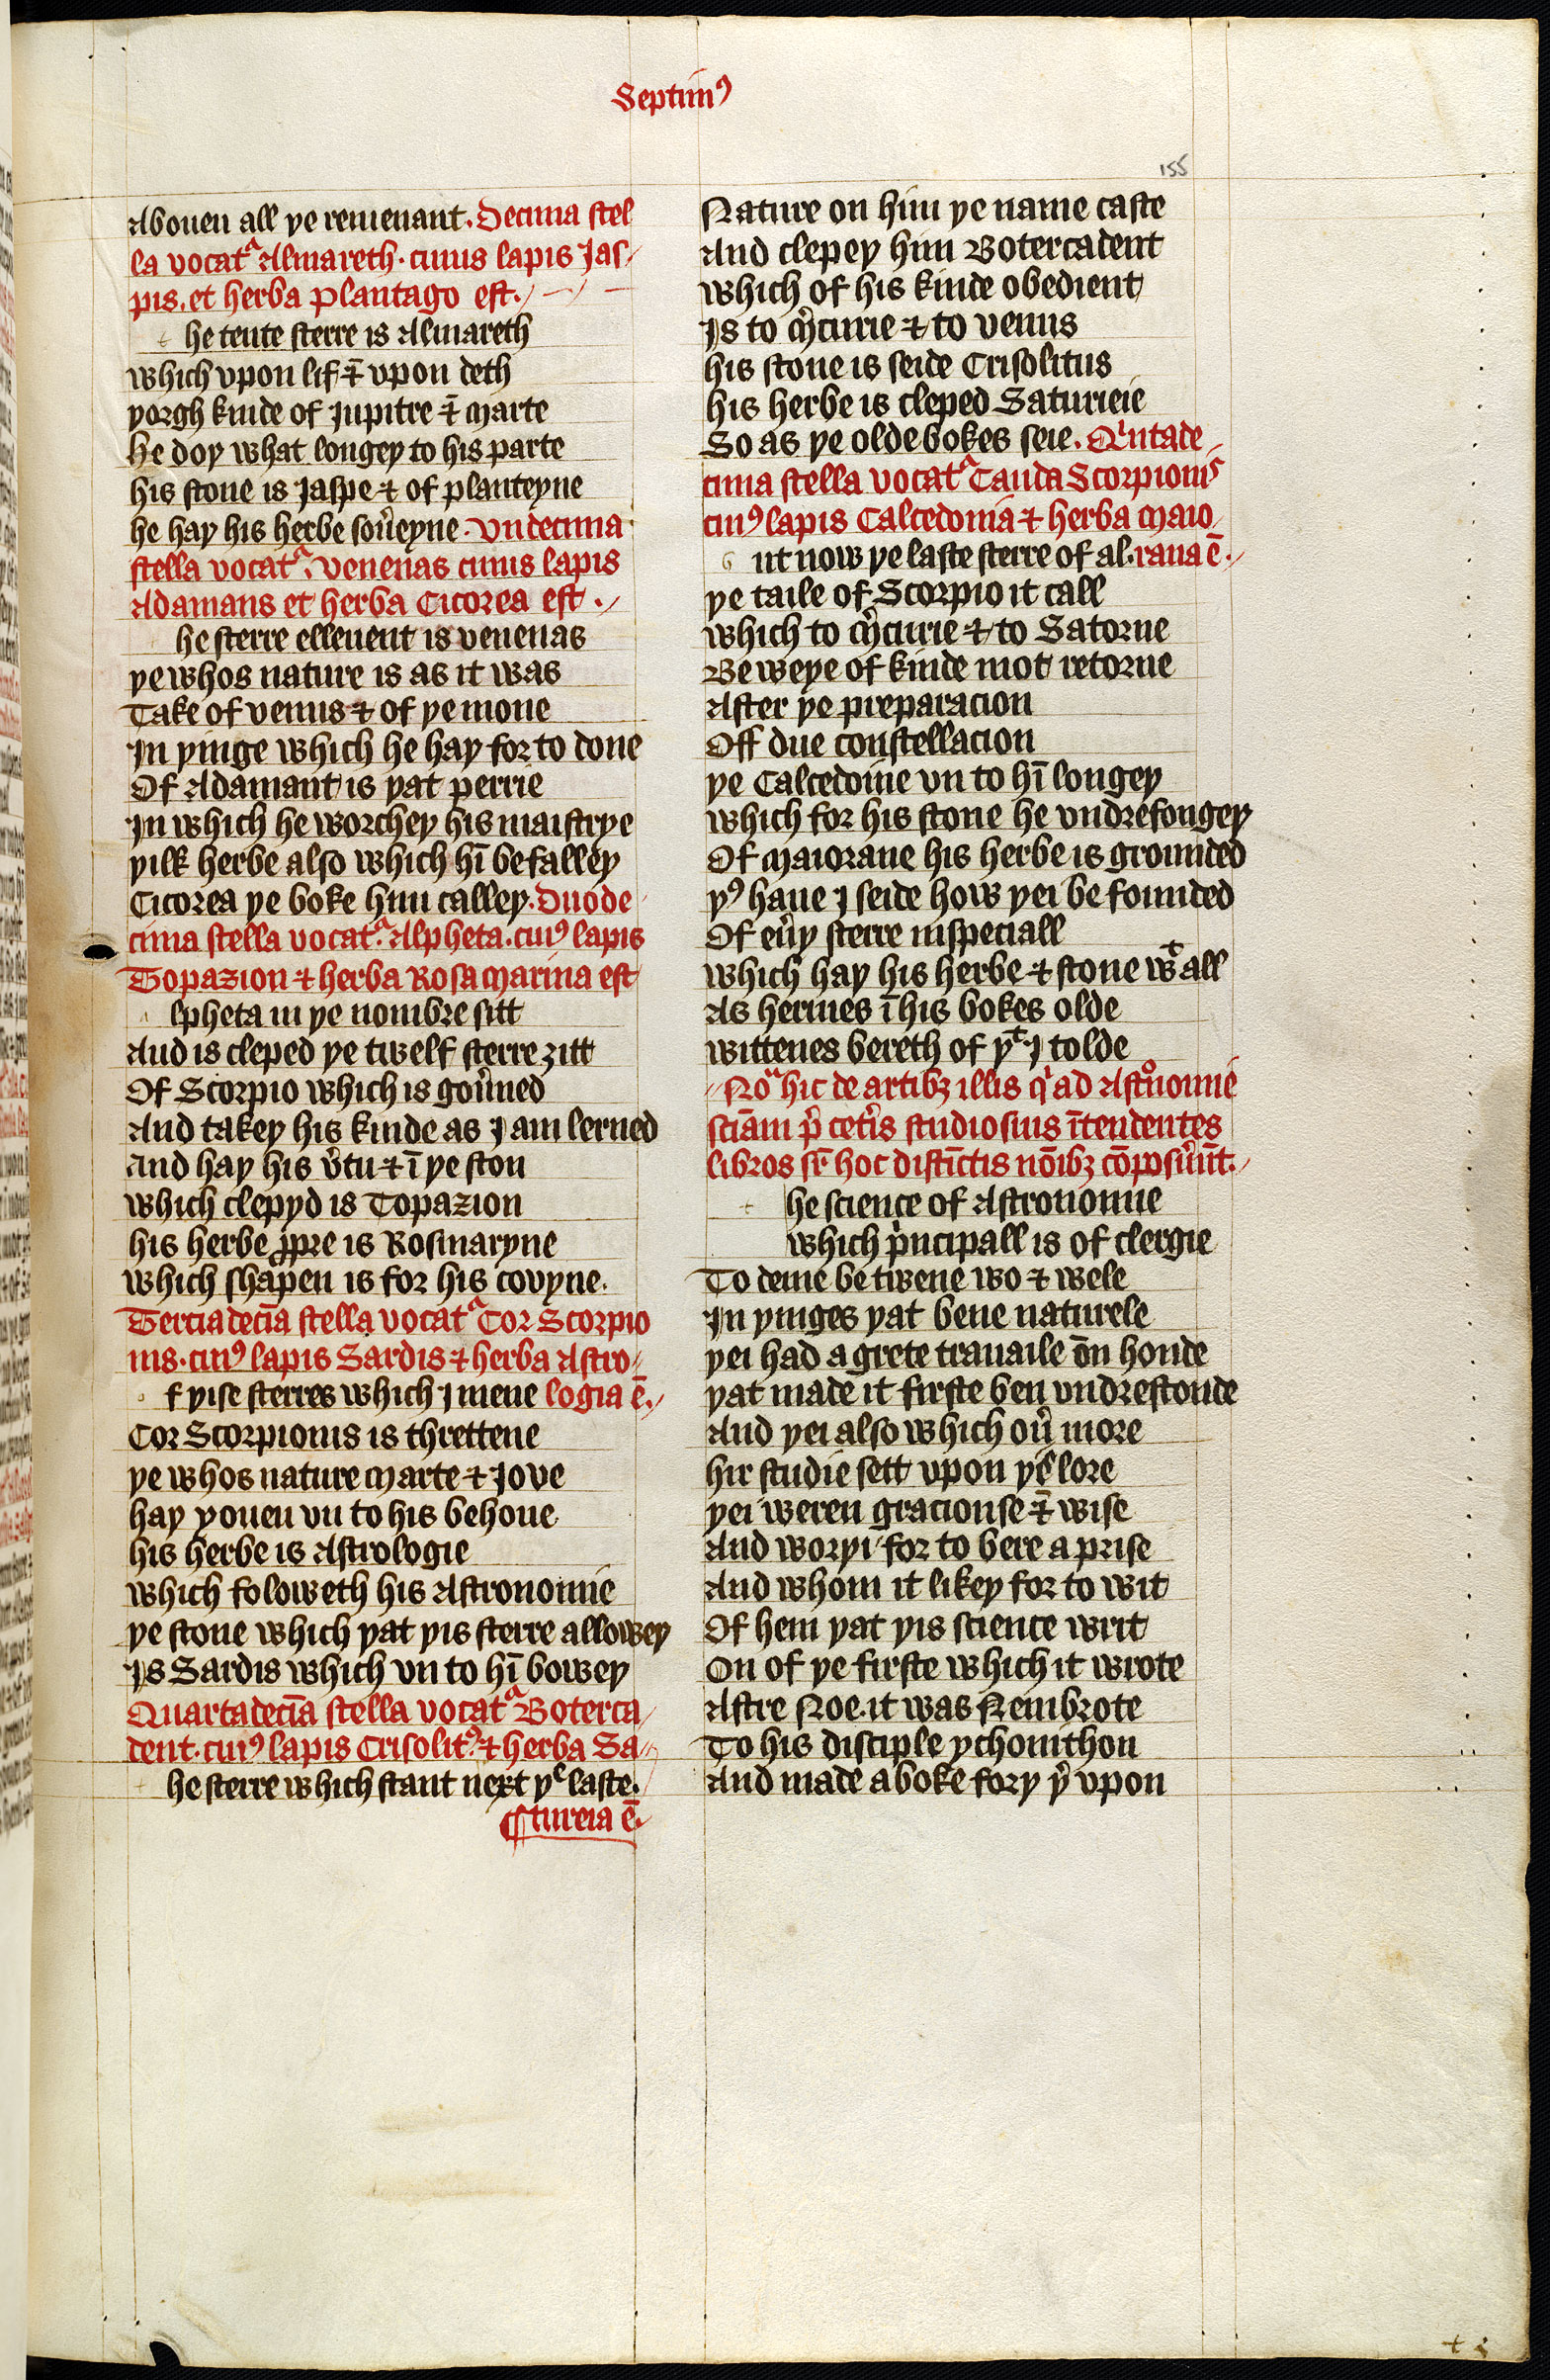 Septimꝰ
155
Abouen all ye remenant. Decima stel
la vocatᵃ Almareth. cuius lapis Jas/
pis. et herba plantago est./
he tente sterre is Almareth
which vpon lif & vpon deth
yorgh kinde of Jupitre & Marte
He doy what longey to his parte
his stone is Jaspe & of planteyne
he hay his herbe soũeyne. Vndecima
stella vocatᵃ. venenas cuius lapis
Adamans et herba Cicorea est ./
he sterre elleuent is venenas
ye whos nature is as it was
Take of venus & of ye mone
In yinge which he hay for to done
Of Adamant is yat perrie
In which he worchey his maistrye
yilk herbe also which hī befalley
Cicorea ye boke him calley. Duode
cima stella vocatᵃ. Alpheta. cuiꝰ lapis
Topazion & herba Rosa marina est
lpheta in ye nombre sitt
And is cleped ye twelf sterre zitt
Of Scorpio which is goũned
And takey his kinde as J am lerned
And hay his v̉tu & ī ye ston
which clepyd is Topazion
his herbe ꝓpre is Rosmaryne
which shapen is for his covyne.
Tercia decīa stella vocatᵃ Cor Scorpio
nis. cuiꝰ lapis Sardis & herba Astro/
f yise sterres which J mene logia ē./
Cor Scorpionis is threttene
ye whos nature Marte & Jove
hay youen vn to his behoue
his herbe is Astrologie
which foloweth his Astronomie
ye stone which yat yis sterre allowey
Is Sardis which vn to hī bowey
Quarta decīa stella vocatᵃ Boterca/
dent. cuiꝰ lapis Crisolitꝰ. & herba Sa/
he sterre which stant next yᵉ laste.
¶tureia ē./
Nature on him ye name caste
And clepey him Botercadent
which of his kinde obedient
Is to m̉curie & to venus
his stone is seide Crisolitus
his herbe is cleped Satureie
So as ye olde bokes seie. Qⁱntade/
cima stella vocatᵃ Cauda Scorpionis
cuiꝰ lapis Calcedonia & herba maio/
ut now ye laste sterre of al. rana ē./
ye taile of Scorpio it call
which to m̉curie & to Satorne
Be weye of kinde mot retorne
After ye preparacion
Off due constellacion
ye Calcedoine vn to hī longey
which for his stone he vndrefongey
Of Maiorane his herbe is grounded
yꝰ haue J seide how yei be founded
Of eũy sterre inspeciall
which hay his herbe & stone wᵗ all
As hermes ī his bokes olde
wittenes bereth of yᵗ J tolde
Noᵃ hic de artibꝫ illis qⁱ ad Astᵒnomie
sciām p̉ cet̉is studiosius ītendentes
libros sr̄ hoc distīctis nōībꝫ cōposũūt./
he science of Astronomie
which pⁱncipall is of clergie
To deme be twene wo & wele
In yinges yat bene naturele
yei had a grete trauaile ōn honde
yat made it firste ben vndrestonde
And yei also which oũ more
hir studie sett vpon yᵉ lore
yei weren graciouse & wise
And woryi for to bere a prise
And whom it likey for to wit
Of hem yat yis science writ
On of ye firste which it wrote
Aftre Noe. it was Nembrote
To his disciple ychonithon
And made a boke fory ỷ vpon